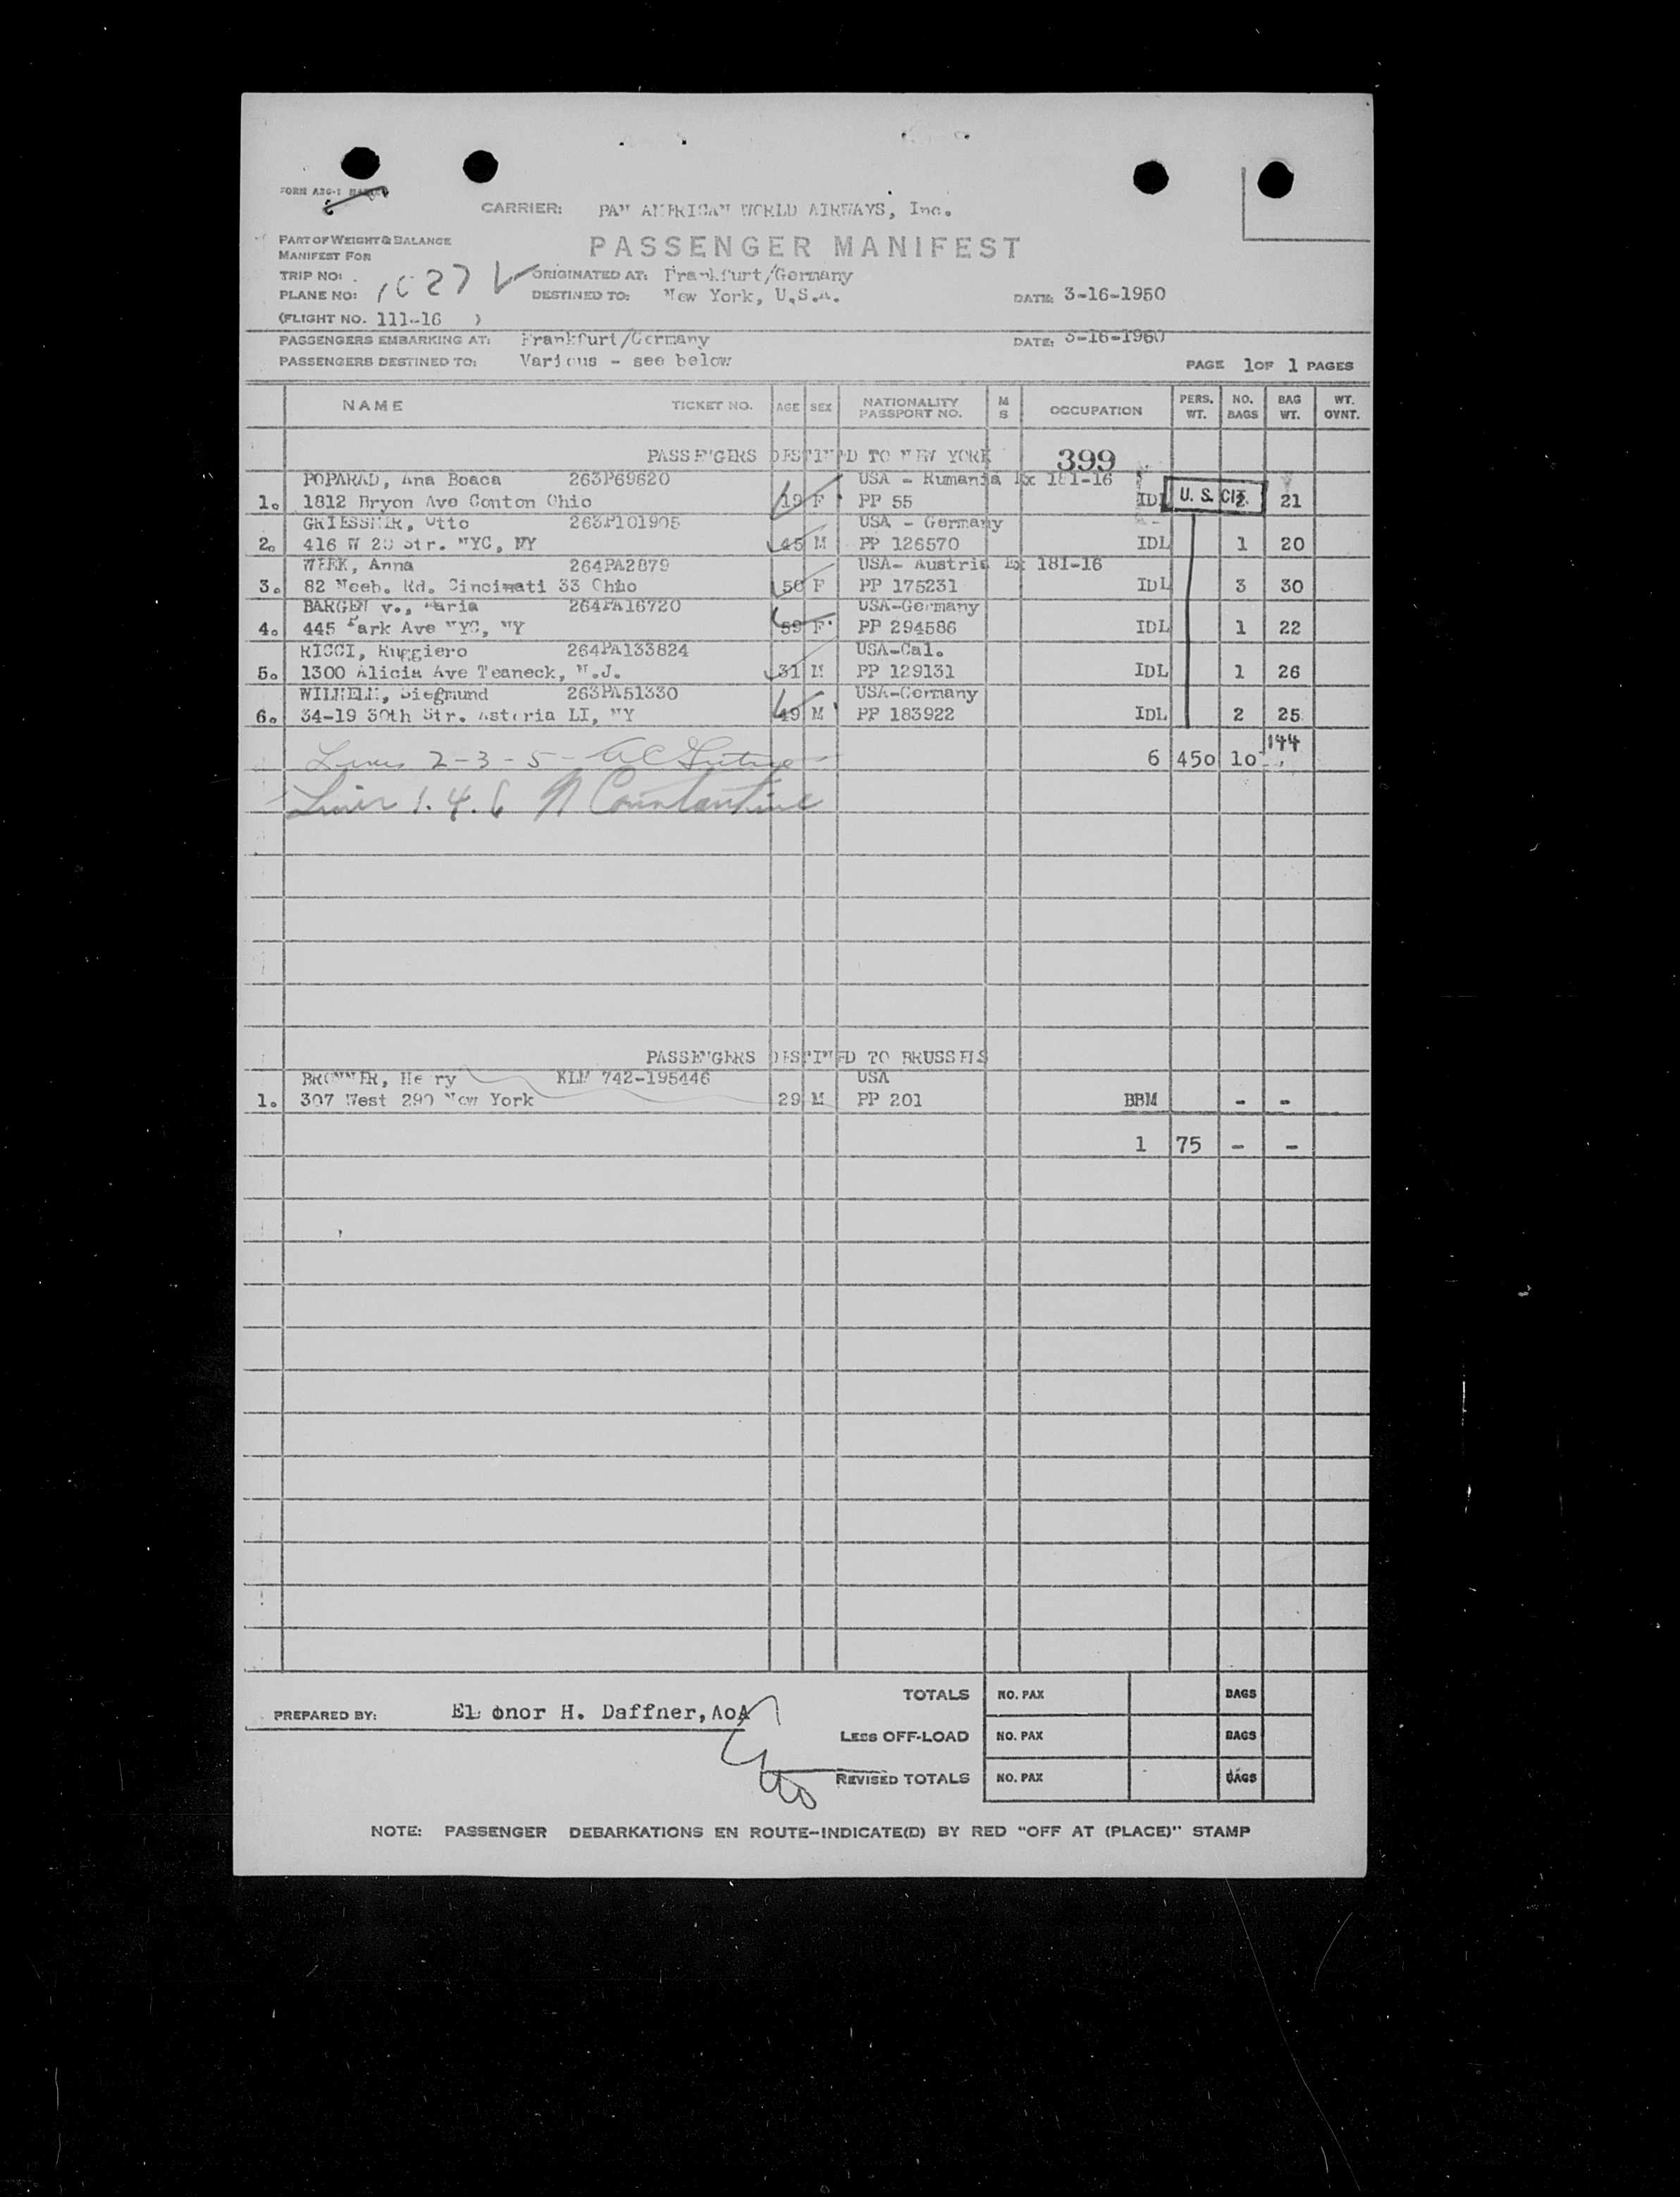 FORM ASG-1
CARRIER: PAN AMERICAN WORLD AIRWAYS, Inc.
PASSENGER MANIFEST
PART OF WEIGHT & BALANCE
MANIFEST FOR
TRIP NO: ORIGINATED AT: Frankfurt/Germany
PLANE NO: 1027V DESTINED TO: New York, U.S.A. DATE: 3-16-1950
(FLIGHT NO. 111-16 )
PASSENGERS EMBARKING AT: Frankfurt/Germany DATE: 3-16-1950
PASSENGERS DESTINED TO: Various - see below
PAGE 1 OF 1 PAGES
NAME TICKET NO. AGE SEX NATIONALITY PASSPORT NO. M S OCCUPATION PERS. WT. NO. BAGS BAG WT. WT. OVNT.
PASSENGERS DESTINED TO NEW YORK 399
POPARAD, Ana Boaca 263P69620 USA - Rumania Ex 181-16
1. 1812 Bryon Ave Conton Ohio 19 F PP 55 IDL U. S. CIT. 2 21
GRIESSMIR, Otto 263P101905 USA - Germany
2. 416 W 20 Str. NYC, NY 45 M PP 126570 IDL 1 20
WERK, Anna 264PA2879 USA- Austria Ex 181-16
3. 82 Neeb. Rd. Cincinnati 33 Ohio 50 F PP 175231 IDL 3 30
BARGEN v., Maria 264PA16720 USA-Germany
4. 445 Park Ave NYC, NY 59 F PP 294586 IDL 1 22
RICCI, Ruggiero 264PA133824 USA-Cal.
5. 1300 Alicia Ave Teaneck, N.J. 31 M PP 129131 IDL 1 26
WILHELM, Siegmund 263PA51330 USA-Germany
6. 34-19 30th Str. Astoria LI, NY 49 M PP 183922 IDL 2 25
Lines 2-3-5- 6 450 10 144
Lines 1.4.6 N Constantine
PASSENGERS DESTINED TO BRUSSELS
BRONNER, Henry KLM 742-195446 USA
1. 307 West 290 New York 29 M PP 201 BBM - -
1 75 - -
TOTALS NO. PAX BAGS
PREPARED BY: Eleonor H. Daffner, AoA
LESS OFF-LOAD NO. PAX BAGS
REVISED TOTALS NO. PAX BAGS
NOTE: PASSENGER DEBARKATIONS EN ROUTE-INDICATE(D) BY RED "OFF AT (PLACE)" STAMP